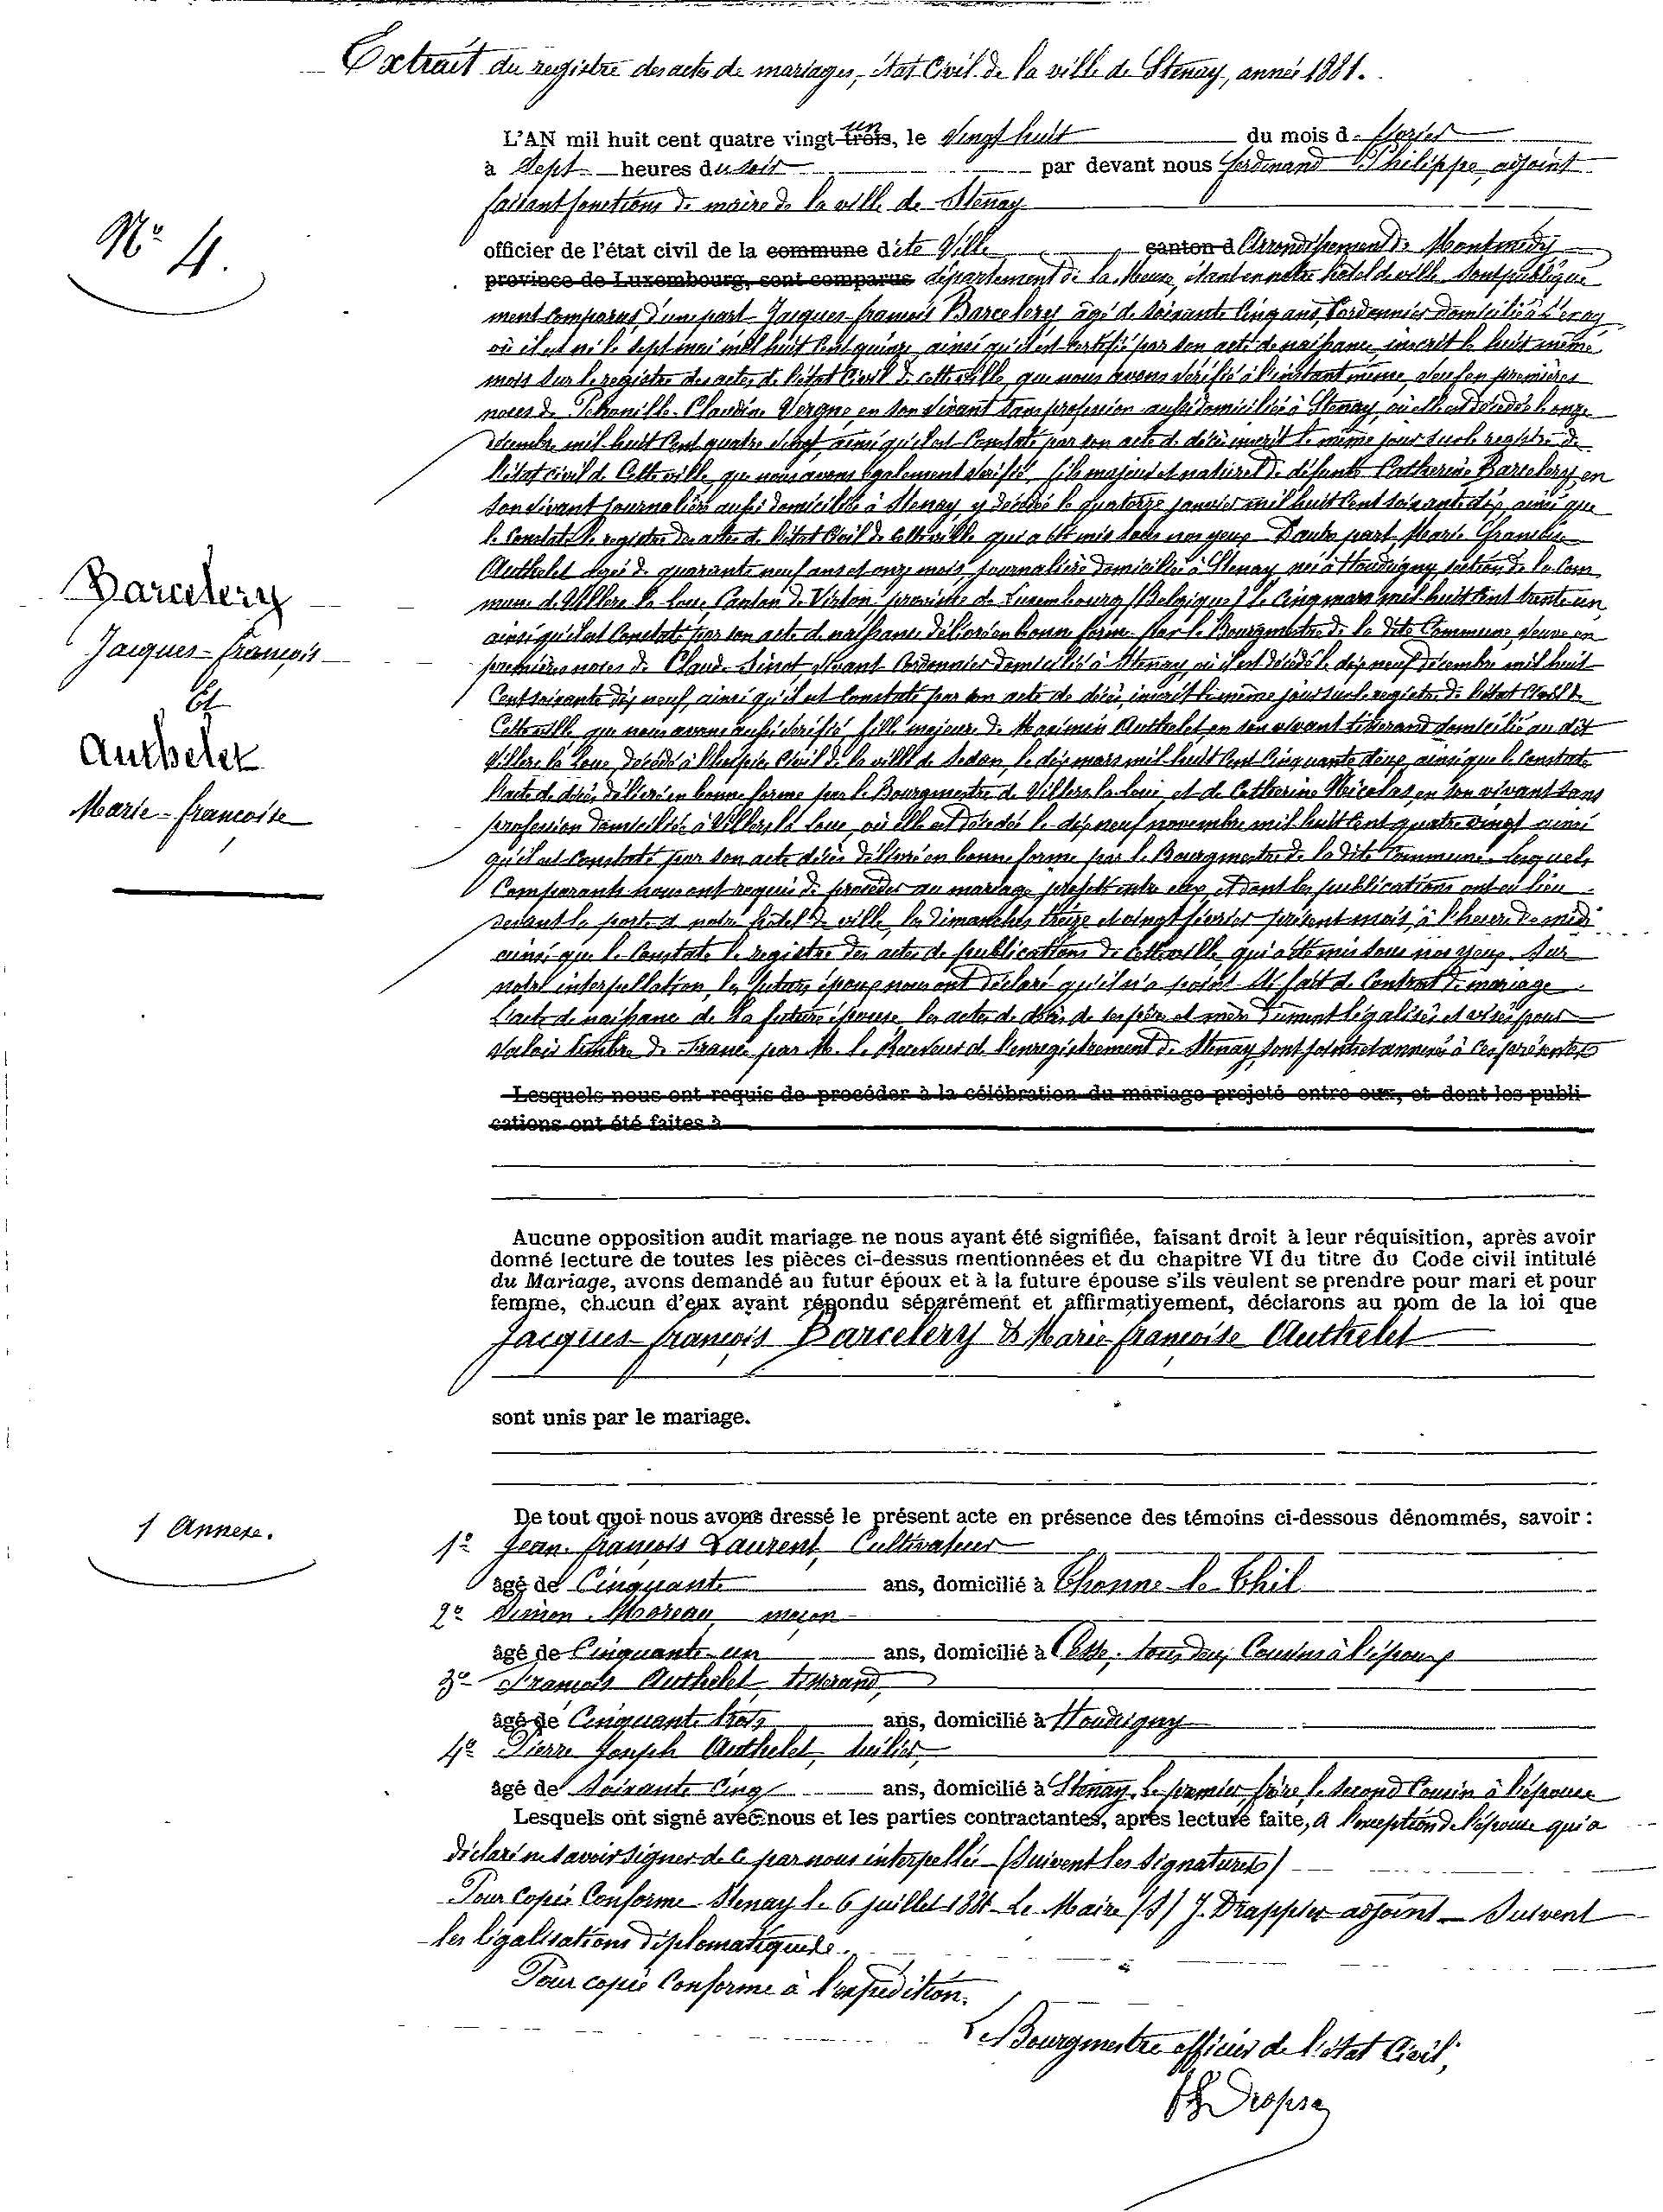 Extrait du registre des actes de mariages, état Civil de la ville de Stenay, année 1881.
L'AN mil huit cent quatre vingt trois, un le Vingt huit du mois d février
à Sept heures du soir par devant nous ferdinand Philippe, adjoint
faisant fonctions de maire de la ville de Stenay
N° 4.
officier de l'état civil de la commune dite Ville canton d Arrondissement de Montmédy
province de Luxembourg, sont comparus département de la Meuse, étant en notre hôtel de ville sont publique
ment comparus, d'une part Jacques françois Barcelery âgé de soixante cinq ans, Cordonnier domicilié à Stenay
où il est né le sept mai mil huit cent quinze ainsi qu'il est certifié par son acte de naissance, inscrit le huit même
mois sur le registre des actes de l'état Civil de cette ville, que nous avons vérifié à l'instant même, veuf en premières
noces de Pétronille Claudine Vergne, en son vivant sans profession aussi domiciliée à Stenay, où elle est décédée le onze
décembre mil huit cent quatre vingt, ainsi qu'il est constaté par son acte de décès inscrit le même jour sur le registre de
l'état civil de cette ville, que nous avons également vérifié, fils majeur et naturel de défunte Catherine Barcelery, en
son vivant journalière aussi domiciliée à Stenay, y décédée le quatorze janvier mil huit cent soixante dix, ainsi que
le constate le registre des actes de l'état Civil de cette ville qui a été mis sous nos yeux. D'autre part, Marie françoise
Authelet agée de quarante neuf ans et onze mois, journalière domiciliée à Stenay, née à Houdrigny, section de la Com
mune de Villers la Loue, Canton de Virton, province de Luxembourg (Belgique) le cinq mars mil huit cent trente un,
ainsi qu'il est constaté par son acte de naissance délivré en bonne forme par le Bourgmestre de la dite Commune, veuve en
premières noces de Claude Sinot, vivant Cordonnier domicilié à Stenay, où il est décédé le dix neuf décembre mil huit
Cent soixante dix neuf, ainsi qu'il est constaté par son acte de décès, inscrit le même jour sur le registre de l'état civil de
Cette ville que nous avons aussi vérifié, fille majeure de Maximin Authelet, en son vivant tisserand domicilié au dit
Villers la Loue, décédé à l'hospice Civil de la ville de Sedan, le dix mars mil huit cent cinquante deux, ainsi que le constate
l'acte de décès délivré en bonne forme par le Bourgmestre de Villers la Loue, et de Catherine Nicolas, en son vivant sans
profession domiciliée à Villers la Loue, où elle est décédée le dix neuf novembre mil huit cent quatre vingt ainsi
qu'il est constaté par son acte décès délivré en bonne forme par le Bourgmestre de la dite Commune. Lesquels
Comparants nous ont requis de procéder au mariage projeté entre eux, et dont les publications ont eu lieu
devant la porte de notre hôtel de ville, les dimanches treize et vingt février présent mois, à l'heure de midi
ainsi que le constate le registre des actes de publications de cette ville qui a été mis sous nos yeux. Sur
notre interpellation, les futurs époux nous ont déclaré qu'il n'a point été fait de Contrat de mariage.
L'acte de naissance de la future épouse, les actes de décès de ses père et mère dûment légalisés et visés pour
valoir timbre de France par M. le Receveur de l'enregistrement de Stenay, sont joints et annexés à ces présentes
Barcelery
Jacques-françois
Et
Authelet
Marie-françoise
Lesquels nous ont requis de procéder à la célébration du mariage projeté entre eux, et dont les publi
cations ont été faites à
Aucune opposition audit mariage ne nous ayant été signifiée, faisant droit à leur réquisition, après avoir
donné lecture de toutes les pièces ci-dessus mentionnées et du chapitre VI du titre du Code civil intitulé
du Mariage, avons demandé au futur époux et à la future épouse s'ils veulent se prendre pour mari et pour
femme, chacun d'eux ayant répondu séparément et affirmativement, déclarons au nom de la loi que
Jacques françois Barcelery & Marie françoise Authelet
sont unis par le mariage.
1 Annexe.
De tout quoi nous avons dressé le présent acte en présence des témoins ci-dessous dénommés, savoir :
1° Jean françois Laurent, Cultivateur
âgé de Cinquante ans, domicilié à Thonne le Thil
2° Simon Moreau, maçon
âgé de Cinquante un ans, domicilié à Cesse, tous deux Cousins à l'époux
3° François Authelet, tisserand,
âgé de Cinquante trois ans, domicilié à Houdrigny
4° Pierre Joseph Authelet, huilier,
âgé de soixante cinq ans, domicilié à Stenay, le premier frère, le second Cousin à l'épouse
Lesquels ont signé avec nous et les parties contractantes, après lecture faite, à l'exception de l'épouse qui a
déclaré ne savoir signer de ce par nous interpellée (Suivent les signatures)
Pour Copie Conforme Stenay le 6 juillet 1881 Le Maire (S) J. Drappier adjoint Suivent
les légalisations diplomatiques.
Pour copie Conforme à l'expédition.
Le Bourgmestre officier de l'état Civil,
Dropsy